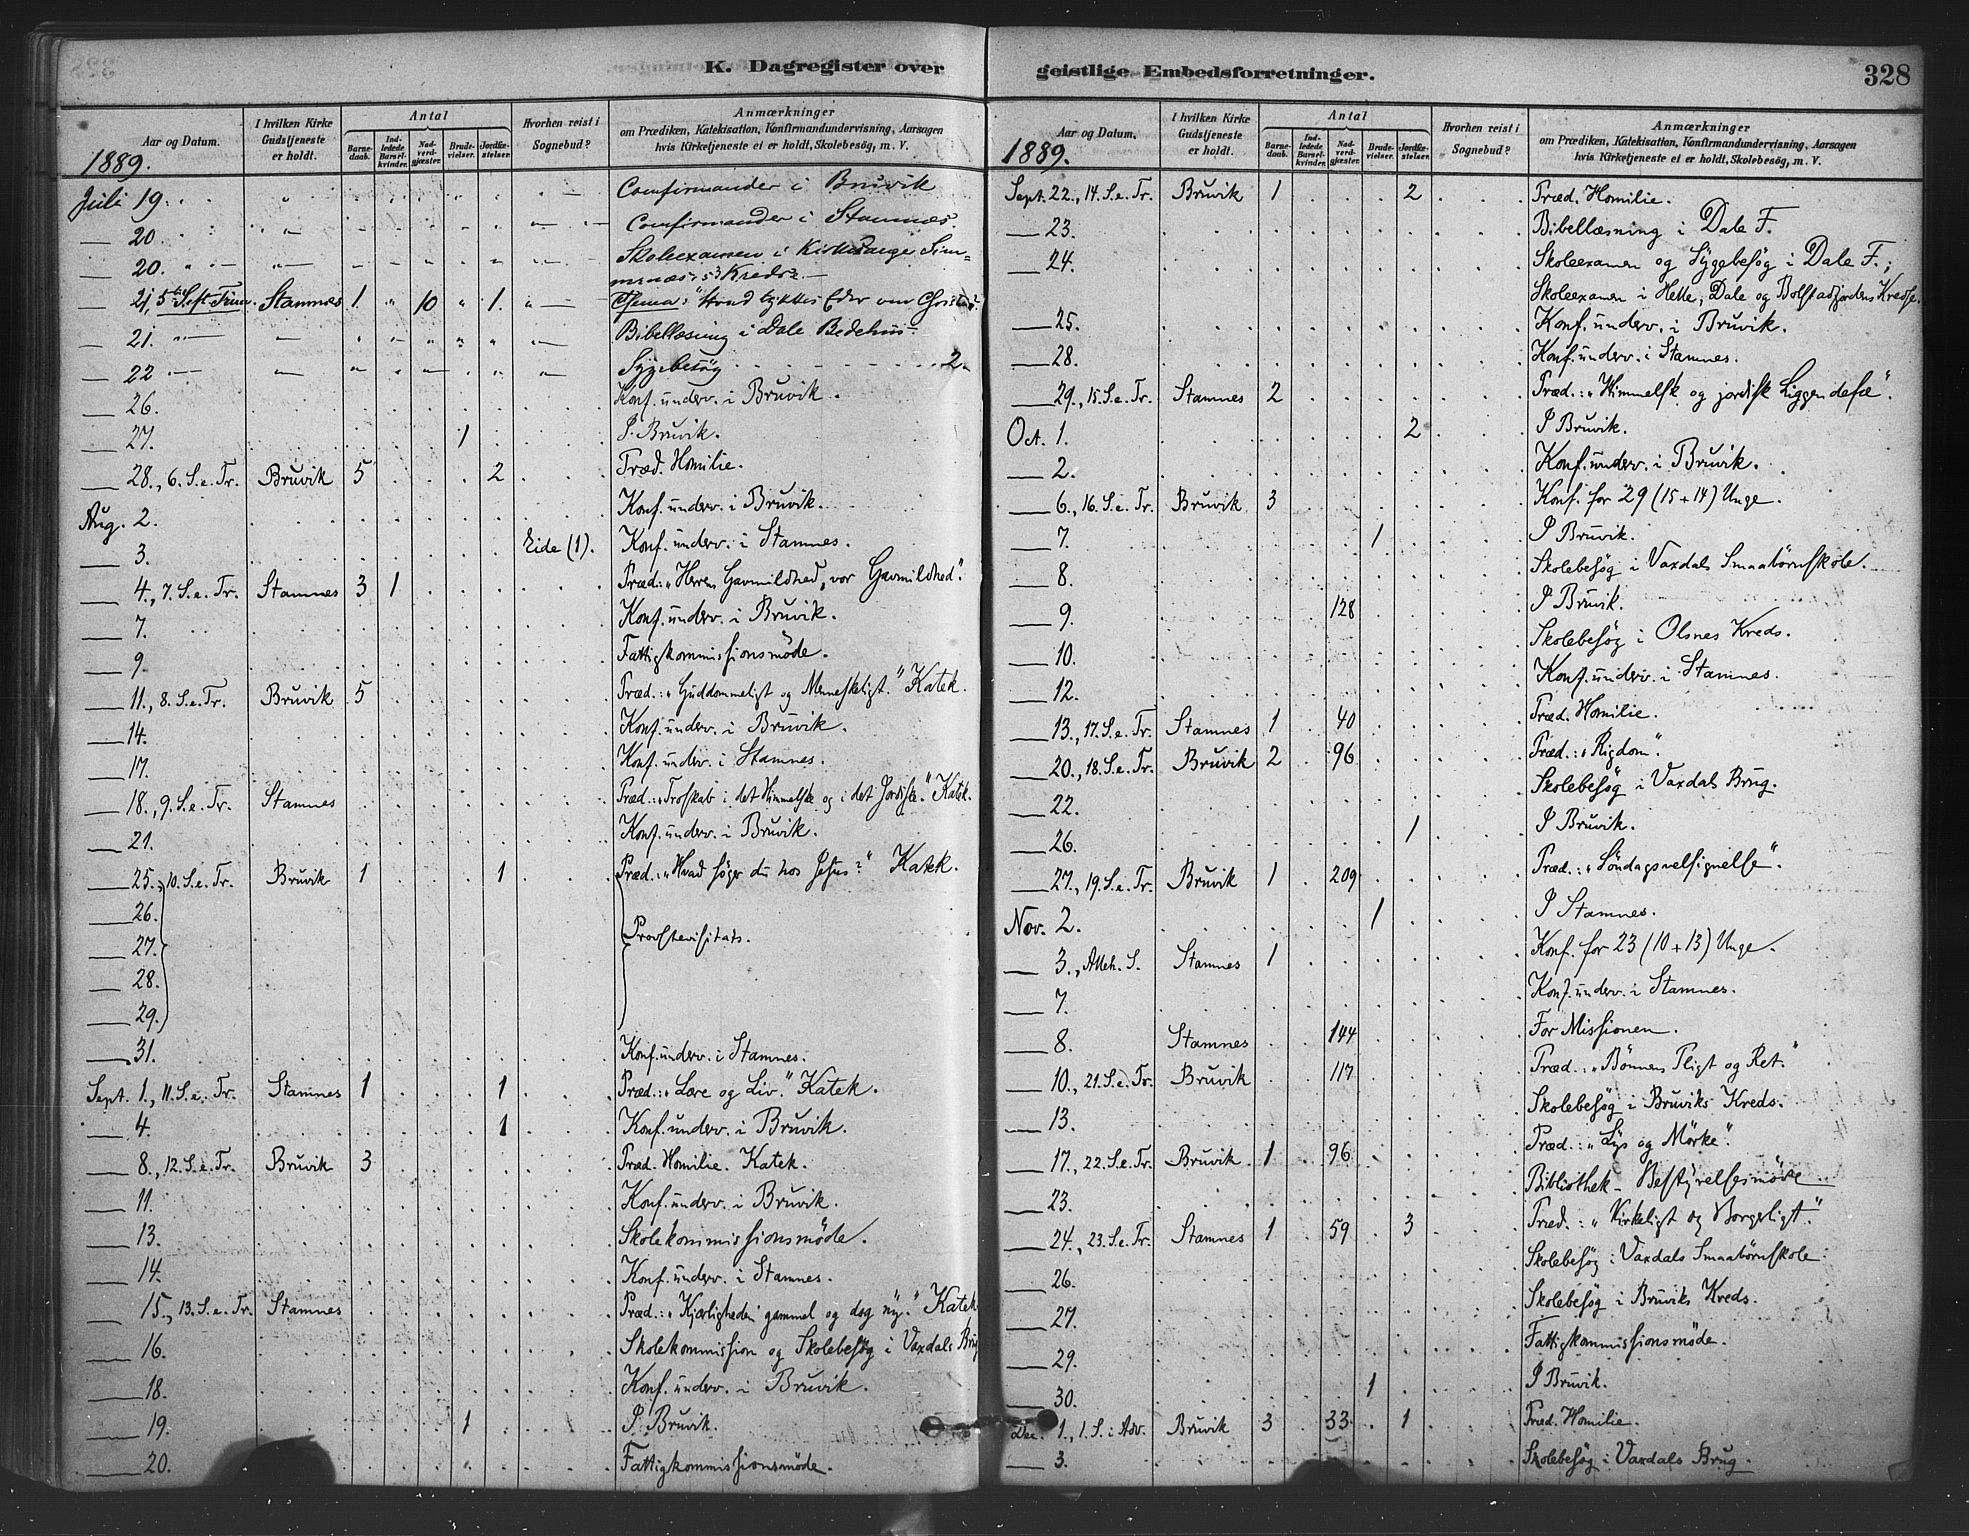 K. Dagregister over
Aar og Datum.
I hvilken Kirke Gudstjeneste er holdt.
Antal
Barnedaab.
Indledede Barselkvinder.
Nadverdgjæster.
Brudevielser.
Jordfæstelser.
Hvorhen reist i Sognebud?
Anmærkninger
om Prædiken, Katekisation, Konfirmandundervisning, Aarsagen
hvis Kirketjeneste ei er holdt, Skolebesøg, m. V.
1889.
Juli 19. Comfirmander i Bruvik
— 20. Comfirmander i Stamnes.
— 20. Skoleexamen i
Kreds
— 21, 5te S. eft. Trin. Stamnes 1. " 10 " 1. Thema: "Hvad tykkes Eder om Christus?
— 21. Bibellæsning i Dale Bedehus
— 22 Sygebesøg 2.
— 26. Konf. underv. i Bruvik.
— 27. 1 I Bruvik.
— 28., 6. S. e. Tr. Bruvik 5 2 Præd. Homilie.
Aug. 2. Konf. underv. i Bruvik.
— 3. Eide (1). Konf. underv. i Stamnes.
— 4., 7. S. e. Tr. Stamnes 3 1 Præd.: "Herrens Gavmildhed, vor Gavmildhed".
— 7. Konf. underv. i Bruvik.
— 9. Fattigkommissionsmöde.
— 11., 8. S. e. Tr. Bruvik 5 Præd.: "Guddommeligt og Menneskeligt." Katek.
— 14. Konf. underv. i Bruvik.
— 17. Konf. underv. i Stamnes.
— 18., 9. S. e. Tr. Stamnes Præd.: "Troskab i det Himmelske og i det Jordiske." Katek.
— 21. Konf. underv. i Bruvik.
— 25., 10. S. e. Tr. Bruvik 1 1 Præd.: "Hvad söger du hos Jesus?" Katek.
— 26.
— 27. Provstevisitats.
— 28.
— 29.
— 31. Konf. underv. i Stamnes.
Sept. 1., 11. S. e. Tr. Stamnes 1 1 Præd.: "Lære og Liv." Katek.
— 4. 1 Konf. underv. i Bruvik.
— 8., 12. S. e. Tr. Bruvik 3 Præd. Homilie. Katek.
— 11. Konf. underv. i Bruvik.
— 13. Skolekommissionsmöde.
— 14. Konf. underv. i Stamnes.
— 15., 13. S. e. Tr. Stamnes Præd.: "Kjærligheden gammel og dog ny." Katek
— 16. Skolekommission og Skolebesög i Vaxdals Brug
— 18. Konf. underv. i Bruvik.
— 19. 1 I Bruvik.
— 20. Fattigkommissionsmöde.
geistlige Embedsforretninger.
328
Aar og Datum.
I hvilken Kirke Gudstjeneste er holdt.
Antal
Barnedaab.
Indledede Barselkvinder.
Nadverdgjæster.
Brudevielser.
Jordfæstelser.
Hvorhen reist i Sognebud?
Anmærkninger
om Prædiken, Katekisation, Konfirmandundervisning, Aarsagen
hvis Kirketjeneste ei er holdt, Skolebesøg, m. V.
1889.
Sept. 22., 14. S. e. Tr. Bruvik 1 2 Præd. Homilie.
— 23. Bibellæsning i Dale F.
— 24. Skoleexamen og Sygebesög i Dale F.;
Skoleexamen i Helle, Dale og Bolstadfjordens Kredse.
— 25. Konf. underv. i Bruvik.
— 28. Konf. underv. i Stamnes.
— 29., 15. S. e. Tr. Stamnes 2 Præd.: "Himmelsk og jordisk Liggendefæ".
Oct. 1. 2 I Bruvik.
— 2. Konf. underv. i Bruvik.
— 6., 16. S. e. Tr. Bruvik 3 Konf. for 29 (15 + 14) Unge.
— 7. 1 I Bruvik.
— 8. Skolebesög i Vaxdals Smaabörnskole.
— 9. 128 I Bruvik.
— 10. Skolebesög i Olsnes Kreds.
— 12. Konf. underv. i Stamnes.
— 13., 17. S. e. Tr. Stamnes 1 40 Præd. Homilie.
— 20., 18. S. e. Tr. Bruvik 2 96 Præd.: "Rigdom".
— 22. Skolebesög i Vaxdals Brug.
— 26. 1 I Bruvik.
— 27., 19. S. e. Tr. Bruvik 1 209 Præd.: "Söndagsvelsignelse".
Nov. 2. 1 I Stamnes.
— 3., Alleh. S. Stamnes 1 Konf. for 23 (10 + 13) Unge.
— 7. Konf. underv. i Stamnes.
— 8. Stamnes 144 For Missionen.
— 10., 21. S. e. Tr. Bruvik 117 Præd.: "Bönnens Pligt og Ret."
— 13. Skolebesög i Bruviks Kreds.
— 17., 22. S. e. Tr. Bruvik 1 96 Præd.: "Lys og Mörke".
— 23. Bibliothek-Bestyrelsesmöde
— 24., 23. S. e. Tr. Stamnes 1 59 3 Præd.: "Kirkeligt og Borgerligt."
— 26. Skolebesög i Vaxdals Smaabörnskole.
— 27. Skolebesög i Bruviks Kreds.
— 29. Fattigkommissionsmöde.
— 30. 1 I Bruvik.
Dec. 1., 1. S. i Adv. Bruvik 3 33 1 Præd. Homilie.
— 3. Skolebesög i Vaxdals Brug.